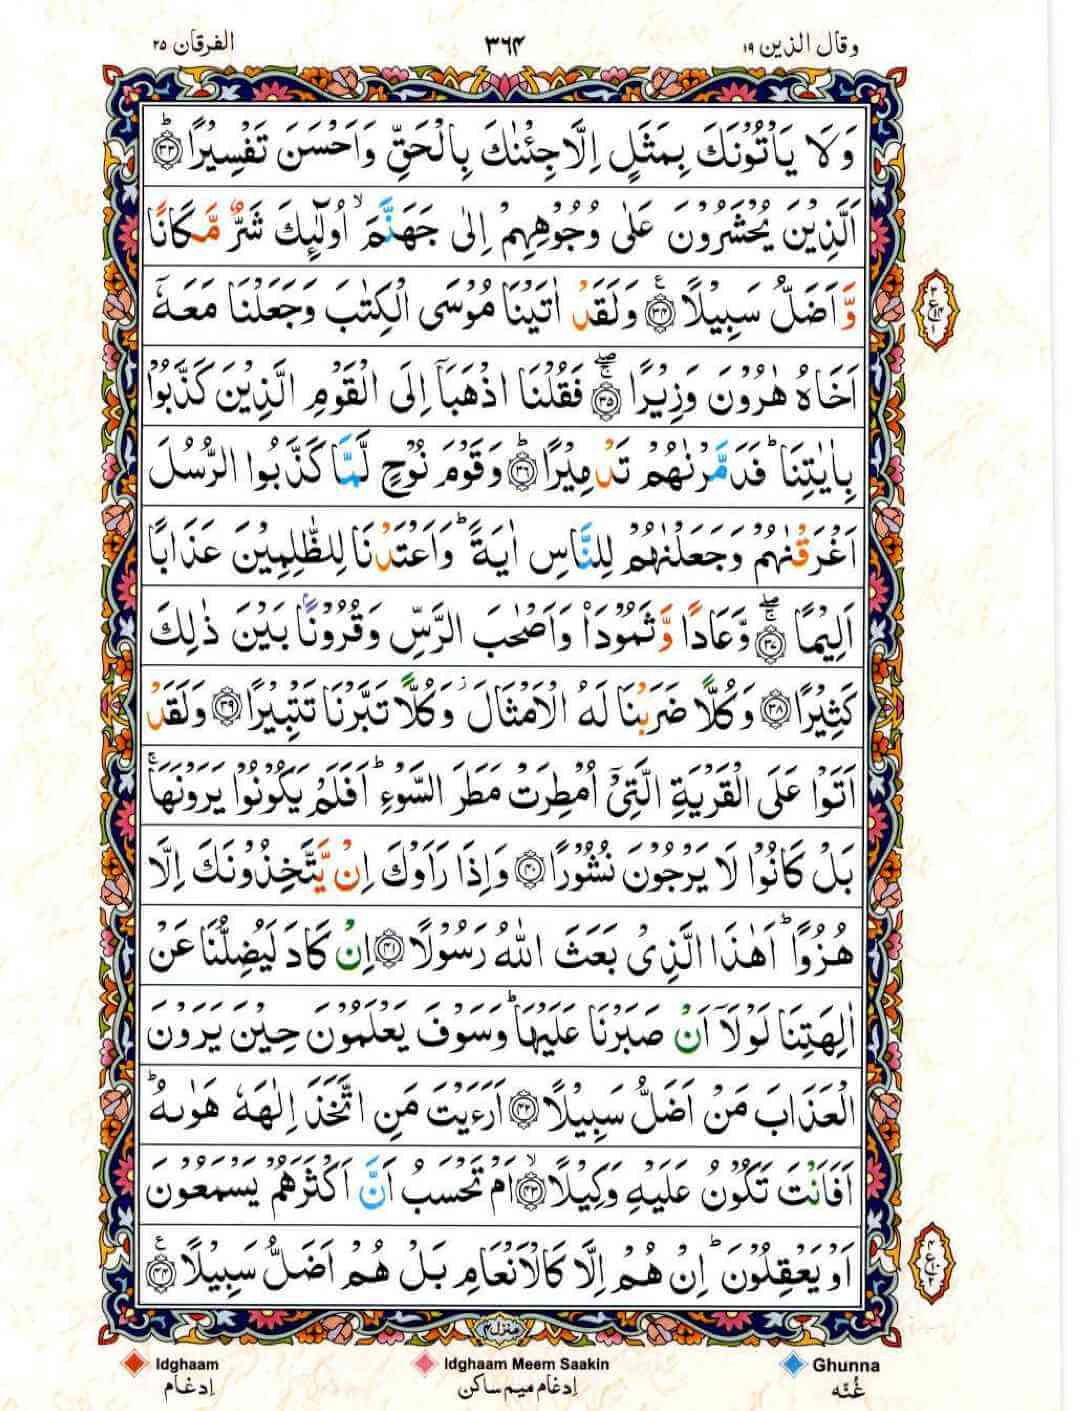 وقال الذين ۱۹ ۳۶۴ الفرقان ۲۵
وَلَا يَاْتُوْنَكَ بِمَثَلٍ اِلَّا جِئْنٰكَ بِالْحَقِّ وَاَحْسَنَ تَفْسِيْرًا ؕ ﴿۳۳﴾
اَلَّذِيْنَ يُحْشَرُوْنَ عَلٰى وُجُوْهِهِمْ اِلٰى جَهَنَّمَ ۙ اُولٰٓئِكَ شَرٌّ مَّكَانًا
وَّاَضَلُّ سَبِيْلًا ﴿۳۴﴾ وَلَقَدْ اٰتَيْنَا مُوْسَى الْكِتٰبَ وَجَعَلْنَا مَعَهٗۤ
اَخَاهُ هٰرُوْنَ وَزِيْرًا ﴿۳۵﴾ فَقُلْنَا اذْهَبَاۤ اِلَى الْقَوْمِ الَّذِيْنَ كَذَّبُوْا
بِاٰيٰتِنَا ؕ فَدَمَّرْنٰهُمْ تَدْمِيْرًا ؕ ﴿۳۶﴾ وَقَوْمَ نُوْحٍ لَّمَّا كَذَّبُوا الرُّسُلَ
اَغْرَقْنٰهُمْ وَجَعَلْنٰهُمْ لِلنَّاسِ اٰيَةً ؕ وَاَعْتَدْنَا لِلظّٰلِمِيْنَ عَذَابًا
اَلِيْمًا ﴿۳۷﴾ وَّعَادًا وَّثَمُوْدَا۟ وَاَصْحٰبَ الرَّسِّ وَقُرُوْنًۢا بَيْنَ ذٰلِكَ
كَثِيْرًا ﴿۳۸﴾ وَكُلًّا ضَرَبْنَا لَهُ الْاَمْثَالَ ؗ وَكُلًّا تَبَّرْنَا تَتْبِيْرًا ﴿۳۹﴾ وَلَقَدْ
اَتَوْا عَلَى الْقَرْيَةِ الَّتِيْۤ اُمْطِرَتْ مَطَرَ السَّوْءِ ؕ اَفَلَمْ يَكُوْنُوْا يَرَوْنَهَا ۚ
بَلْ كَانُوْا لَا يَرْجُوْنَ نُشُوْرًا ﴿۴۰﴾ وَاِذَا رَاَوْكَ اِنْ يَّتَّخِذُوْنَكَ اِلَّا
هُزُوًا ؕ اَهٰذَا الَّذِيْ بَعَثَ اللّٰهُ رَسُوْلًا ﴿۴۱﴾ اِنْ كَادَ لَيُضِلُّنَا عَنْ
اٰلِهَتِنَا لَوْلَاۤ اَنْ صَبَرْنَا عَلَيْهَا ؕ وَسَوْفَ يَعْلَمُوْنَ حِيْنَ يَرَوْنَ
الْعَذَابَ مَنْ اَضَلُّ سَبِيْلًا ﴿۴۲﴾ اَرَءَيْتَ مَنِ اتَّخَذَ اِلٰهَهٗ هَوٰىهُ ؕ
اَفَاَنْتَ تَكُوْنُ عَلَيْهِ وَكِيْلًا ۙ ﴿۴۳﴾ اَمْ تَحْسَبُ اَنَّ اَكْثَرَهُمْ يَسْمَعُوْنَ
اَوْ يَعْقِلُوْنَ ؕ اِنْ هُمْ اِلَّا كَالْاَنْعَامِ بَلْ هُمْ اَضَلُّ سَبِيْلًا ﴿۴۴﴾
Idghaam Idghaam Meem Saakin Ghunna
اِدغام اِدغام میم ساکن غُنّه